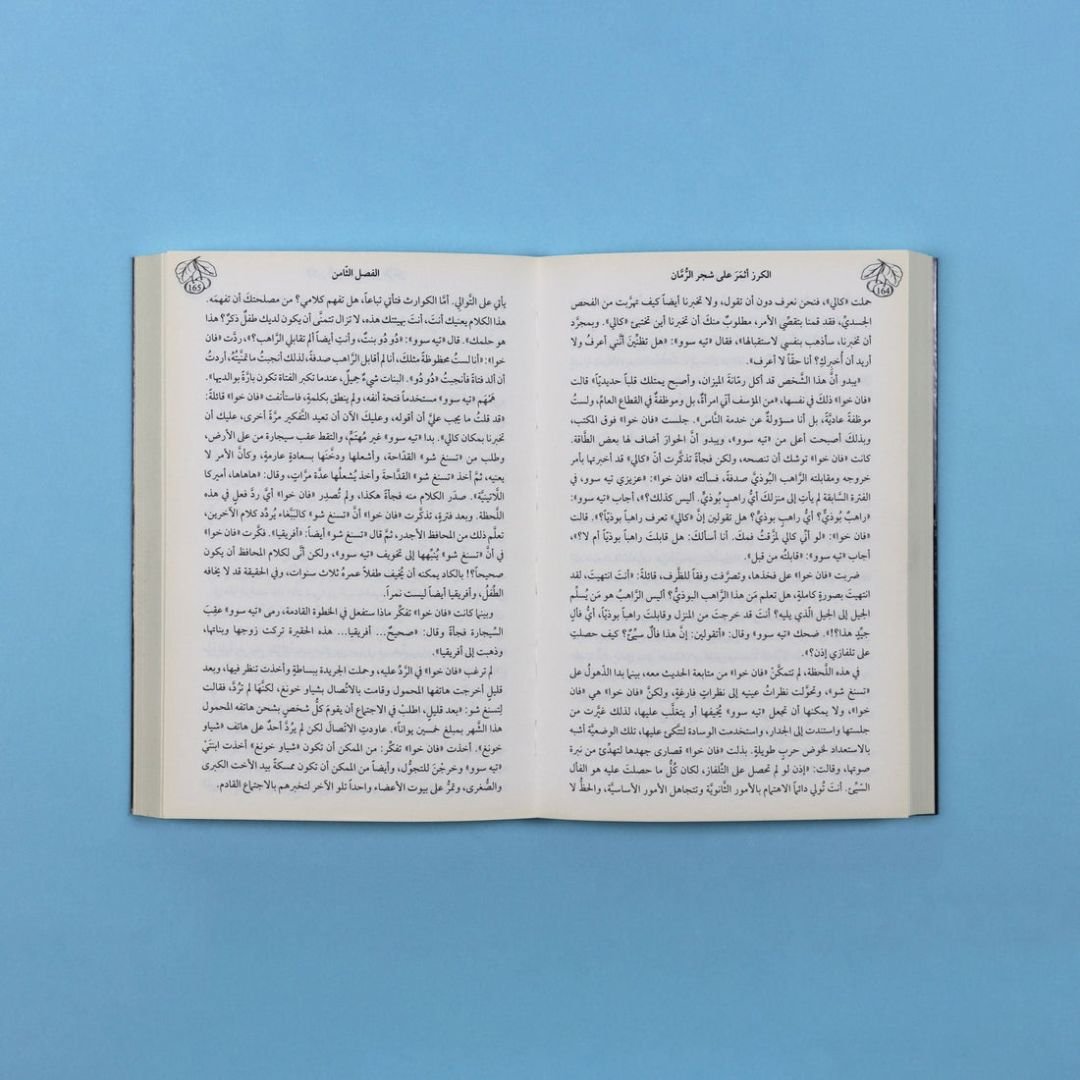 164
الكرز أثمَرَ على شجر الرُّمَّان
حملت «كالي»، فنحن نعرف دون أن تقول، ولا تخبرنا أيضاً كيف تهرَّبت من الفحص
الجسديِّ، فقد قمنا بتقصِّي الأمر، مطلوبٌ منكَ أن تخبرنا أين تختبئ «كالي». وبمجرَّد
أن تخبرنا، سأذهب بنفسي لاستقبالها»، فقال «تيه سوو»: «هل تظنِّينَ أنَّني أعرفُ ولا
أريد أن أُخبركِ؟ أنا حقَّاً لا أعرف».
يبدو أنَّ هذا الشَّخص قد أكل رمَّانة الميزان، وأصبح يمتلك قلباً حديديَّاً» قالت
«فان خوا» ذلك في نفسها، «من المؤسف أنّي امرأةٌ، بل وموظفةٌ في القطاع العامِّ، ولستُ
موظفة عاديَّة، بل أنا مسؤولةٌ عن خدمة النَّاس». جلست «فان خوا» فوق المكتب،
وبذلكَ أصبحت أعلى من «تيه سوو»، ويبدو أنَّ الحوارَ أضاف لها بعض الطَّاقة.
كانت «فان خوا» توشك أن تنصحه، ولكن فجأةً تذكَّرت أنّ «كالي» قد أخبرتها بأمر
خروجه ومقابلته الرَّاهب البُوذيَّ صدفةً، فسألته «فان خوا»: «عزيزي تيه سوو، في
الفترة السَّابقة لم يأتِ إلى منزلكَ أيُّ راهبٍ بُوذيٍّ. أليس كذلك؟»، أجاب «تيه سوو»:
«راهبٌ بُوذيٌّ؟ أيُّ راهبٍ بوذيٍّ؟ هل تقولين إنَّ «كالي» تعرف راهباً بوذيَّاً؟». قالت
«فان خوا»: «لو أنّي كالي لمزَّقتُ فمكَ. أنا أسألكَ: هل قابلتَ راهباً بوذيَّاً أم لا؟»،
أجاب «تيه سوو»: «قابلتُه من قبل».
ضربت «فان خوا» على فخذها، وتصرَّفت وفقاً للظَّرف، قائلةً: «أنتَ انتهيتَ، لقد
انتهيتَ بصورةٍ كاملةٍ، هل تعلم مَن هذا الرَّاهب البوذيُّ؟ أليس الرَّاهبُ هو مَن يُسلِّم
الجيل إلى الجيل الَّذي يليه؟ أنتَ قد خرجتَ من المنزل وقابلتَ راهباً بوذيَّاً، أيُّ فألٍ
جيِّدٍ هذا؟!». ضحك «تيه سوو» وقال: «أتقولين: إنَّ هذا فألٌ سيِّئٌ؟ كيف حصلتِ
على تلفازي إذن؟».
في هذه اللَّحظة، لم تتمكَّنْ «فان خوا» من متابعة الحديث معه، بينما بدا الذُّهولُ على
«تسنغ شو»، وتحوَّلت نظراتُ عينيه إلى نظراتٍ فارغةٍ، ولكنَّ «فان خوا» هي «فان
خوا»، ولا يمكنها أن تجعل «تيه سوو» يُخيفها أو يتغلَّب عليها، لذلك غيَّرت من
جلستها واستندت إلى الجدار، واستخدمت الوسادة لتتَّكئ عليها، تلك الوضعيَّة أشبه
بالاستعداد لخوض حربٍ طويلةٍ. بذلت «فان خوا» قصارى جهدها لتهدِّئ من نبرة
صوتها، وقالت: «إذن لو لم تحصل على التِّلفاز، لكان كُلُّ ما حصلتَ عليه هو الفأل
السَّيِّئ. أنتَ تُولي دائماً الاهتمام بالأمور الثَّانويَّة وتتجاهل الأمور الأساسيَّة، والحظُّ لا
165
الفصل الثّامن
يأتي على التَّوالي. أمَّا الكوارث فتأتي تباعاً، هل تفهم كلامي؟ من مصلحتكَ أن تفهمَه.
هذا الكلام يعنيك أنتَ، أنتَ بهيئتك هذه، لا تزال تتمنَّى أن يكون لديك طفلٌ ذكرٌ؟ هذا
هو حلمك». قال «تيه سوو»: «دُو دُو بنتٌ، وأنتِ أيضاً ألم تقابلي الرَّاهب؟»، ردَّت «فان
خوا»: «أنا لستُ محظوظةً مثلكَ، أنا لم أقابل الرَّاهب صدفةً، لذلك أنجبتُ ما تمنَّيتُهُ، أردتُ
أن ألد فتاةً فأنجبتُ «دُو دُو». البنات شيءٌ جميلٌ، عندما تكبر الفتاة تكون بارَّةً بوالديها».
همْهَم «تيه سوو» مستخدماً فتحة أنفه، ولم ينطق بكلمةٍ، فاستأنفت «فان خوا» قائلةً:
«قد قلتُ ما يجب عليَّ أن أقوله، وعليكَ الآن أن تعيد التَّفكير مرَّةً أخرى، عليك أن
تخبرنا بمكان كالي». بدا «تيه سوو» غير مُهتمٍّ، والتقط عقب سيجارة من على الأرض،
وطلب من «تسنغ شو» القدّاحة، وأشعلها ودخَّنها بسعادةٍ عارمةٍ، وكأنَّ الأمر لا
يعنيه، ثمَّ أخذ «تسنغ شو» القدَّاحةَ وأخذ يُشعلُها عدَّة مرَّاتٍ، وقال: «هاهاها، أميركا
اللَّاتينيَّة». صدَر الكلام منه فجأةً هكذا، ولم تُصدِر «فان خوا» أيَّ ردَّ فعلٍ في هذه
اللَّحظة. وبعد فترةٍ، تذكَّرت «فان خوا» أنَّ «تسنغ شو» كالبَبَّغاء يُردِّد كلام الآخرين،
تعلَّم ذلك من المحافظ الأجدر، ثمَّ قال «تسنغ شو» أيضاً: «أفريقيا». فكَّرت «فان خوا»
في أنَّ «تسنغ شو» يُنبِّهها إلى تخويف «تيه سوو»، ولكن أنَّى لكلام المحافظ أن يكون
صحيحاً؟! بالكاد يمكنه أن يُخيف طفلاً عمرهُ ثلاث سنوات، وفي الحقيقة قد لا يخافه
الطِّفلُ، وأفريقيا أيضاً ليست نمراً.
وبينما كانت «فان خوا» تفكِّر ماذا ستفعل في الخطوة القادمة، رمى «تيه سوو» عقِبَ
السِّيجارة فجأةً وقال: «صحيحٌ... أفريقيا... هذه الحقيرة تركت زوجها وبناتها،
وذهبت إلى أفريقيا».
لم ترغب «فان خوا» في الرَّدِّ عليه، وحملت الجريدة ببساطةٍ وأخذت تنظر فيها، وبعد
قليلٍ أخرجت هاتفها المحمول وقامت بالاتِّصال بشياو خونغ، لكنَّها لم تردَّ، فقالت
لِتسنغ شو: «بعد قليلٍ، اطلبْ في الاجتماع أن يقومَ كلُّ شخصٍ بشحن هاتفه المحمول
هذا الشَّهر بمبلغ خمسين يواناً». عاودتِ الاتّصالَ لكن لم يرُدَّ أحدٌ على هاتف «شياو
خونغ». أخذت «فان خوا» تفكّر: من الممكن أن تكون «شياو خونغ» أخذت ابنتَيْ
«تيه سوو» وخرجْنَ للتجوُّل، وأيضاً من الممكن أن تكون ممسكةً بيد الأخت الكبرى
والصُّغرى، وتمرُّ على بيوت الأعضاء واحداً تلو الآخر لتخبرهم بالاجتماع القادم.